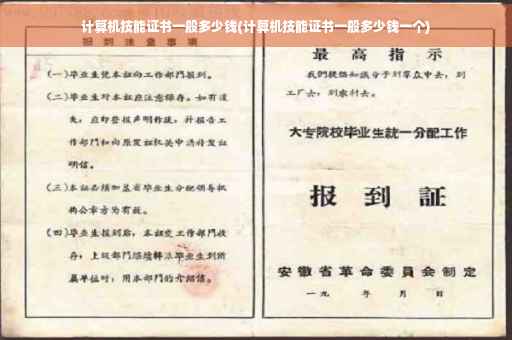 计算机技能证书一般多少钱(计算机技能证书一般多少钱一个)
报到注意事项
(一)毕业生凭本证向工作部门报到。
(二)毕业生对本证应注意保存。如有遗
失,应即登报声明作废,并报告工
作部门和向原发证机关申请补发证
明信。
(三)本证必须加盖省毕业生分配领导机
构公章方为有效。
(四)毕业生报到后,本证交工作部门收
存;上级部门
毕业生到所
属单位时,用本部门的介绍信。
最高指示
我们提倡知识分子到群众中去,到
工厂去,到农村去。
大专院校毕业生統一分配工作
报到証
安徽省革命委員会制定
一九 年 月 日